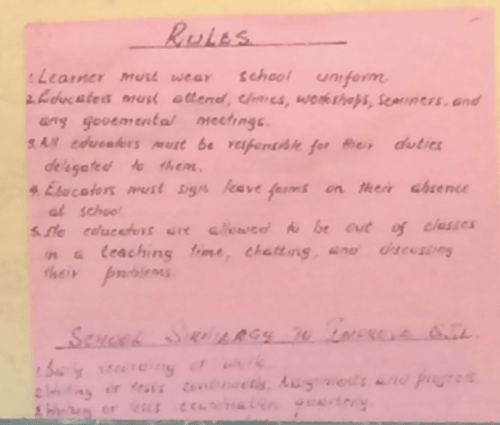 RULES
1. Learner must wear school uniform
2. Educators must attend, clinics, workshops, seminers and
any govemental meetings.
3. All educators must be responsible for their duties
delegated to them.
4. Educators must sign leave forms on their absence
at school
5. No educators are allowed to be out of classes
in a teaching time, chatting, and discussing
their problems.
SCHOOL STRATERGY TO IMPROVE
1. Daily recording of work.
2. Writing of tests continously, Assignments and projects
3. Writing of tests examination quarterly.